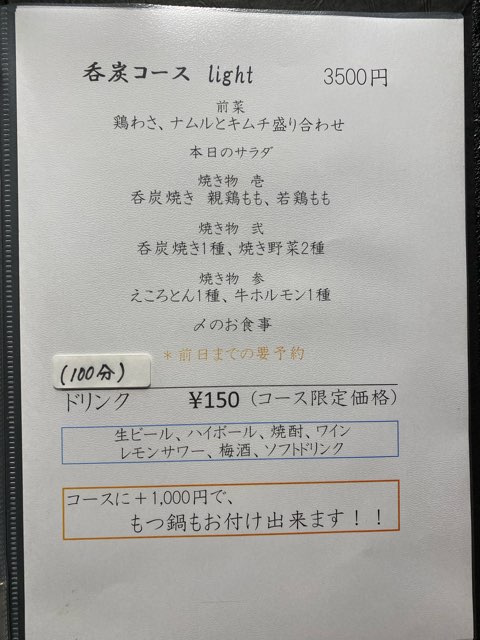 呑炭コース light 3500円
前菜
鶏わさ、ナムルとキムチ盛り合わせ
本日のサラダ
焼き物 壱
呑炭焼き 親鶏もも、若鶏もも
焼き物 弐
呑炭焼き1種、焼き野菜2種
焼き物 参
えころとん1種、牛ホルモン1種
〆のお食事
*前日までの要予約
(100分)
ドリンク ¥150(コース限定価格)
生ビール、ハイボール、焼酎、ワイン
レモンサワー、梅酒、ソフトドリンク
コースに+1,000円で、
もつ鍋もお付け出来ます!!